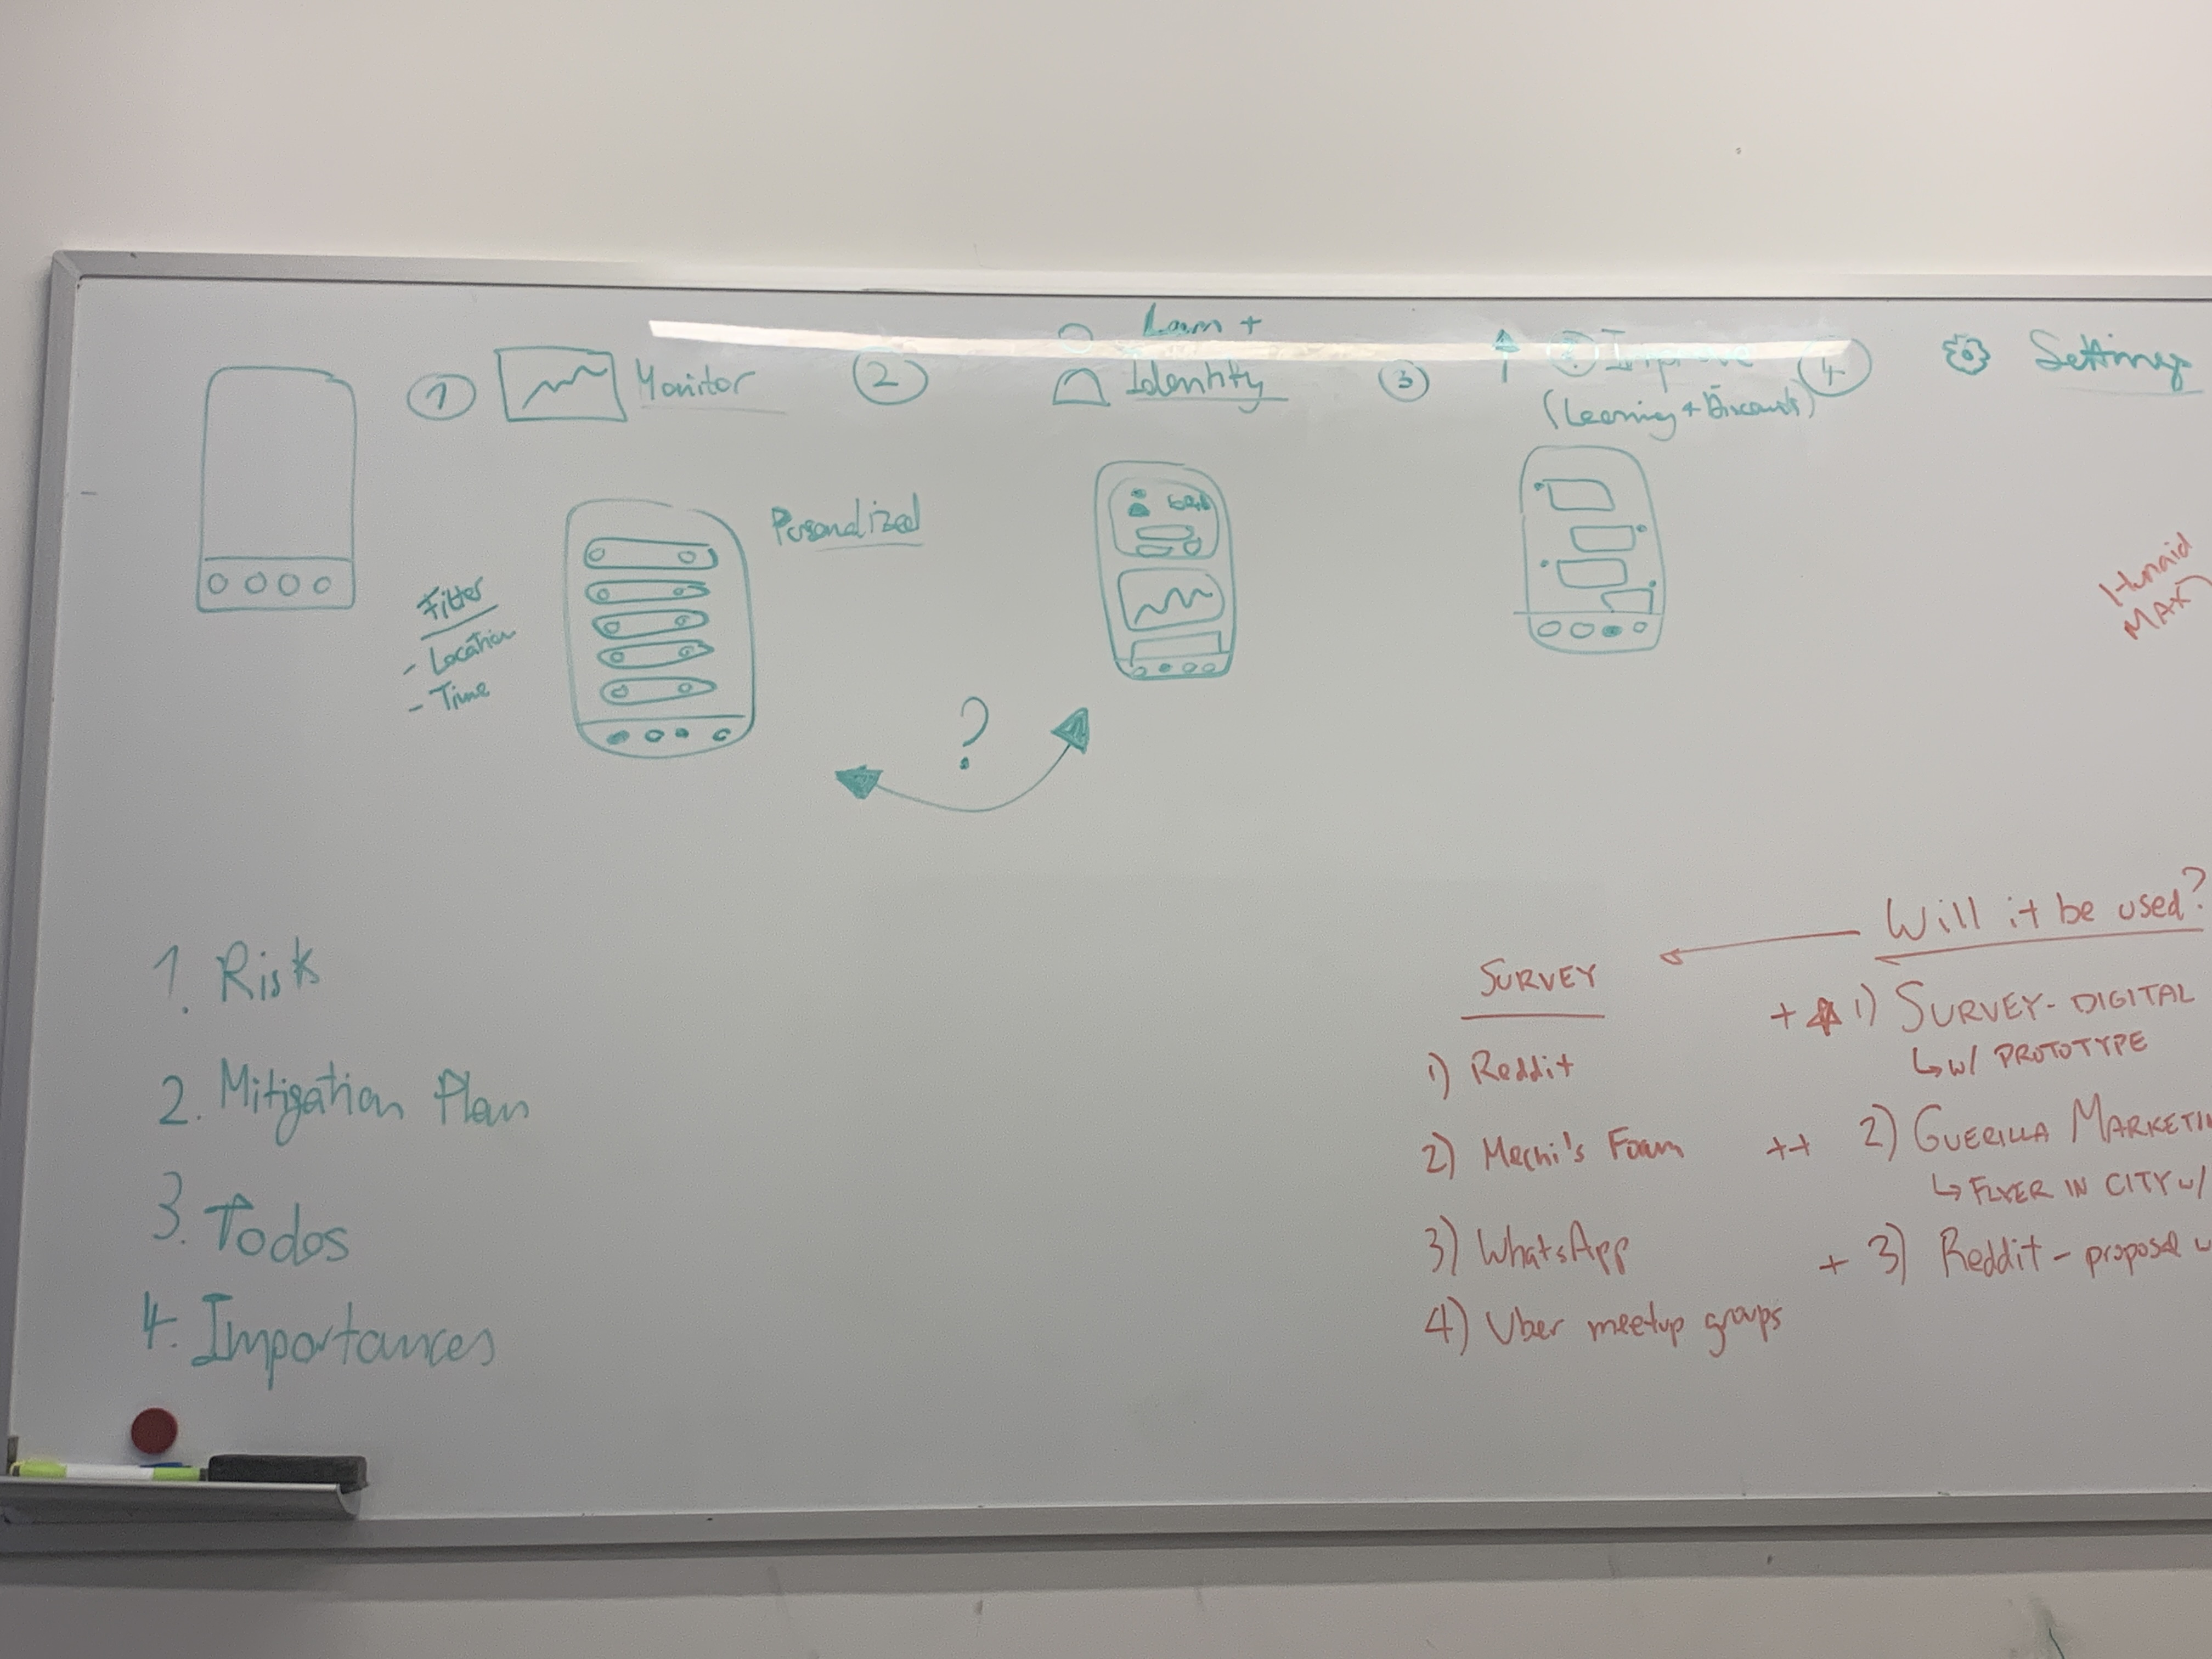 1 Monitor
2 Learn +
Identity
3 Improve
(Learning + Discounts)
4 Settings
Personalized
Filter
- Location
- Time
?
Hunaid
MAX
1. Risk
2. Mitigation Plan
3. Todos
4. Importances
Will it be used?
SURVEY
1) Reddit
2) Forum
3) WhatsApp
4) Uber meetup groups
+ 1) SURVEY - DIGITAL
↳ w/ PROTOTYPE
++ 2) GUERILLA MARKETIN
↳ FLYER IN CITY w/
+ 3) Reddit - proposal w